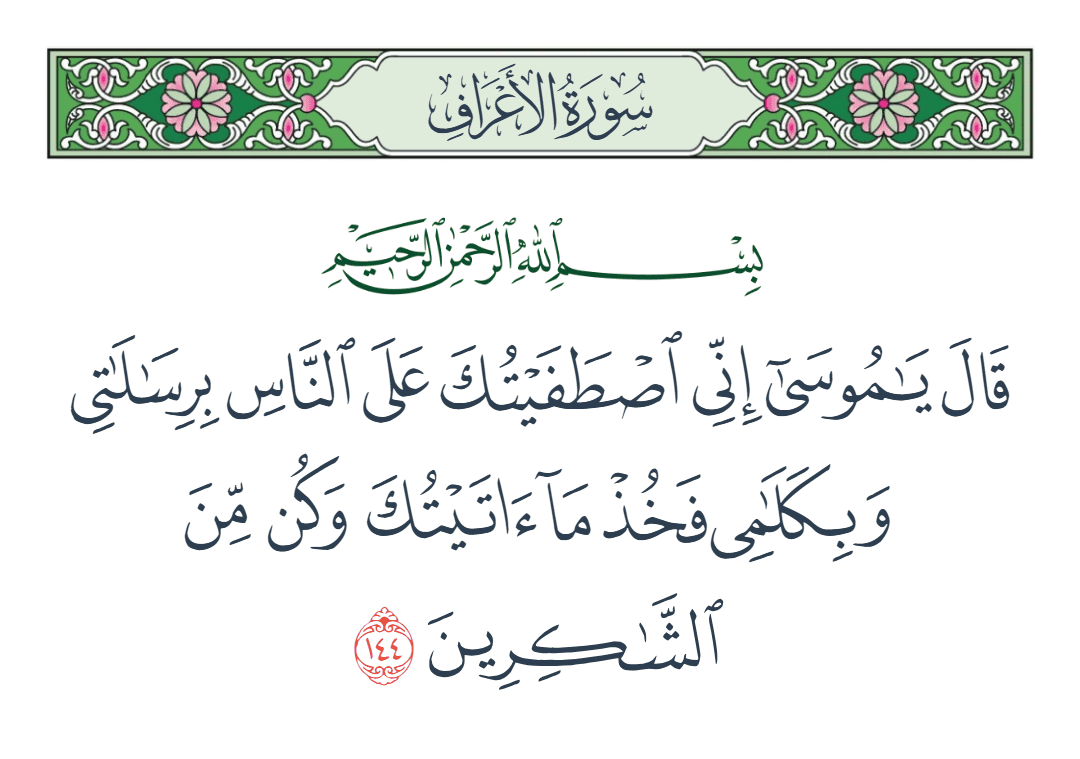 سُورَةُ الأَعْرَافِ
بِسْمِ ٱللَّهِ ٱلرَّحْمَٰنِ ٱلرَّحِيمِ
قَالَ يَـٰمُوسَىٰٓ إِنِّى ٱصْطَفَيْتُكَ عَلَى ٱلنَّاسِ بِرِسَـٰلَـٰتِى
وَبِكَلَـٰمِى فَخُذْ مَآ ءَاتَيْتُكَ وَكُن مِّنَ
ٱلشَّـٰكِرِينَ ١٤٤